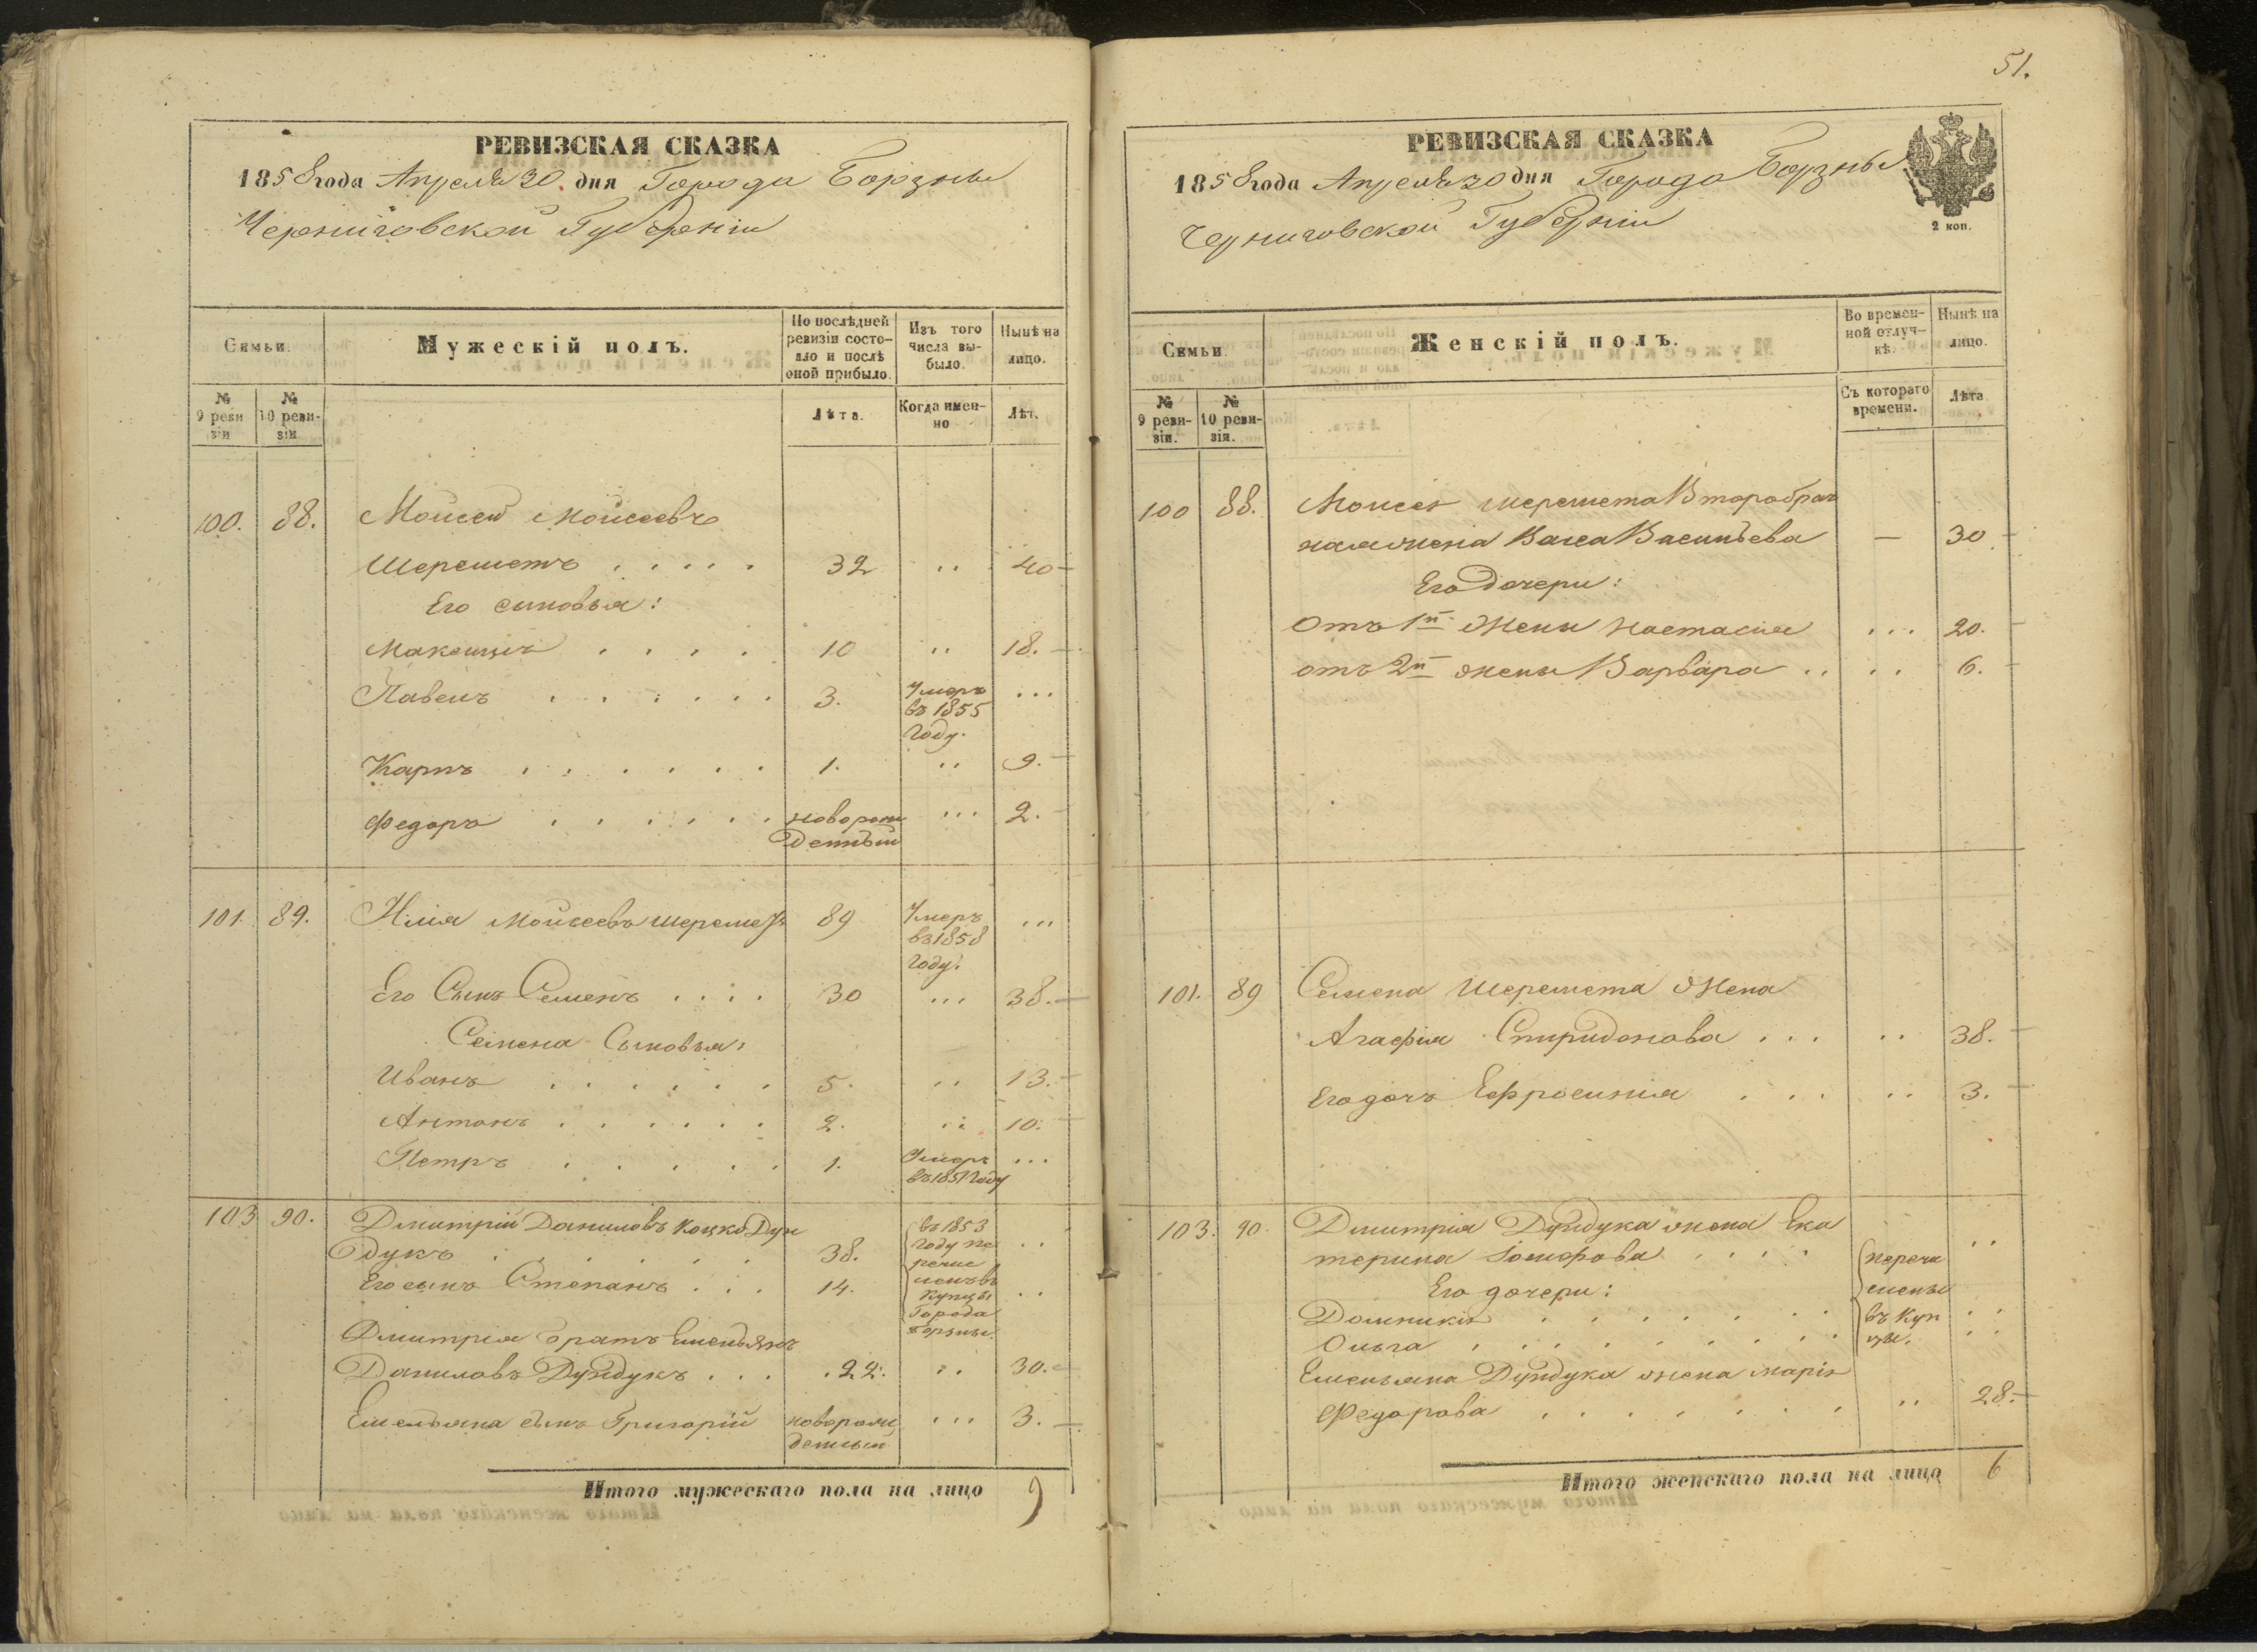 51.
РЕВИЗСКАЯ СКАЗКА
1858 года Апреля 30. дня Города Борзны
Черниговской Губерніи
Семьи.
Мужескій полъ.
По послѣдней ревизіи состо-
яло и послѣ оной прибыло.
Изъ того числа вы-
было.
Нынѣ на лицо.
№ 9 реви
зіи
№ 10 реви-
зіи
Лѣта.
Когда имен-
но
Лѣт.
100. 88. Моисей Моисеевъ
Шереметъ . . . . . 32 .. 40
Его сыновья:
Максимъ . . . . 10 .. 18.
Павелъ . . . . . . 3. Умеръ въ 1855 Году. ...
Карпъ . . . . . . 1. .. 9.
Федоръ . . . . . . новорож
денный ... 2.
101. 89. Илія Моисеевъ Шереметъ 89 Умеръ въ 1858 Году. ...
Его Сынъ Семенъ . . . . 30 ... 38.
Семена Сыновья:
Иванъ . . . . . . 5. .. 13.
Антонъ . . . . . . 2. .. 10.
Петръ . . . . . 1. Умеръ въ 1851 Году ...
103 90. Дмитрій Даниловъ Коцко Дун
дукъ . . . . . . 38. въ 1853 Году пе
речис
ленъ въ купцы Города Борзны. ..
Его сынъ Степанъ . . . 14. ..
Дмитрія братъ Емельянъ
Даниловъ Дундукъ . . . 22. .. 30.
Емельяна сынъ Григорій новорож
денный ... 3.
Итого мужескаго пола на лицо 9
РЕВИЗСКАЯ СКАЗКА
1858 года Апреля 30 дня Города Борзны
Черниговской Губерніи
2 коп.
Семьи.
Женскій полъ.
Во времен-
ной отлуч-
кѣ.
Нынѣ на лицо.
№ 9 реви-
зіи.
№ 10 реви-
зіи.
Съ котораго времени.
Лѣта
100 88. Моисея Шеремета Вторабрач
ная жена Васса Васильева — 30
Его Дочери:
Отъ 1й Жены Настасія ... 20.
отъ 2й жены Варвара .. .. 6.
101. 89 Семена Шеремета Жена
Агафія Спиридонова . . . .. 38.
Его дочь Ефросинія . . . .. 3.
103. 90. Дмитрія Дундука жена Ека
терина . . . . ..
Его дочери:
Домникія . . . . . . ..
Ольга . . . . . . . . ..
перечи
слены въ Куп
цы.
Емельяна Дундука жена Марія
Федорова . . . . . . . .. 28.
Итого женскаго пола на лицо 6